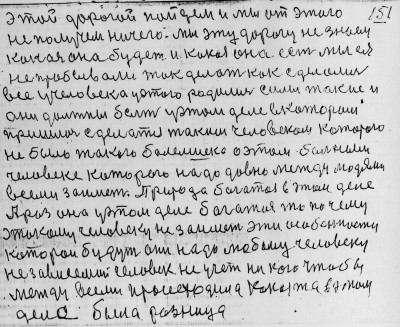 151
этой дорогой пойдем и мы от этого
не получим ничего. мы эту дорогу не знаем
какая она будет и какая она есть мы ея
не пробывали так делат как сделали
все учеловека уэтого родилис силы такие и
они должны быт уэтом деле вкотором
пришлос сделатся таким человеком которого
не было такого болеющего о этом больном
человеке которого надо довно между людями
всеми занимет Природа богатоя в этом деле
А раз она уэтом деле богатоя то почему
этакому человеку не занимет эти особенности
которои будут они надо любому человеку
независемый человек не учет ни кого чтобы
между всеми происходила какаята вэтом
дело была разница